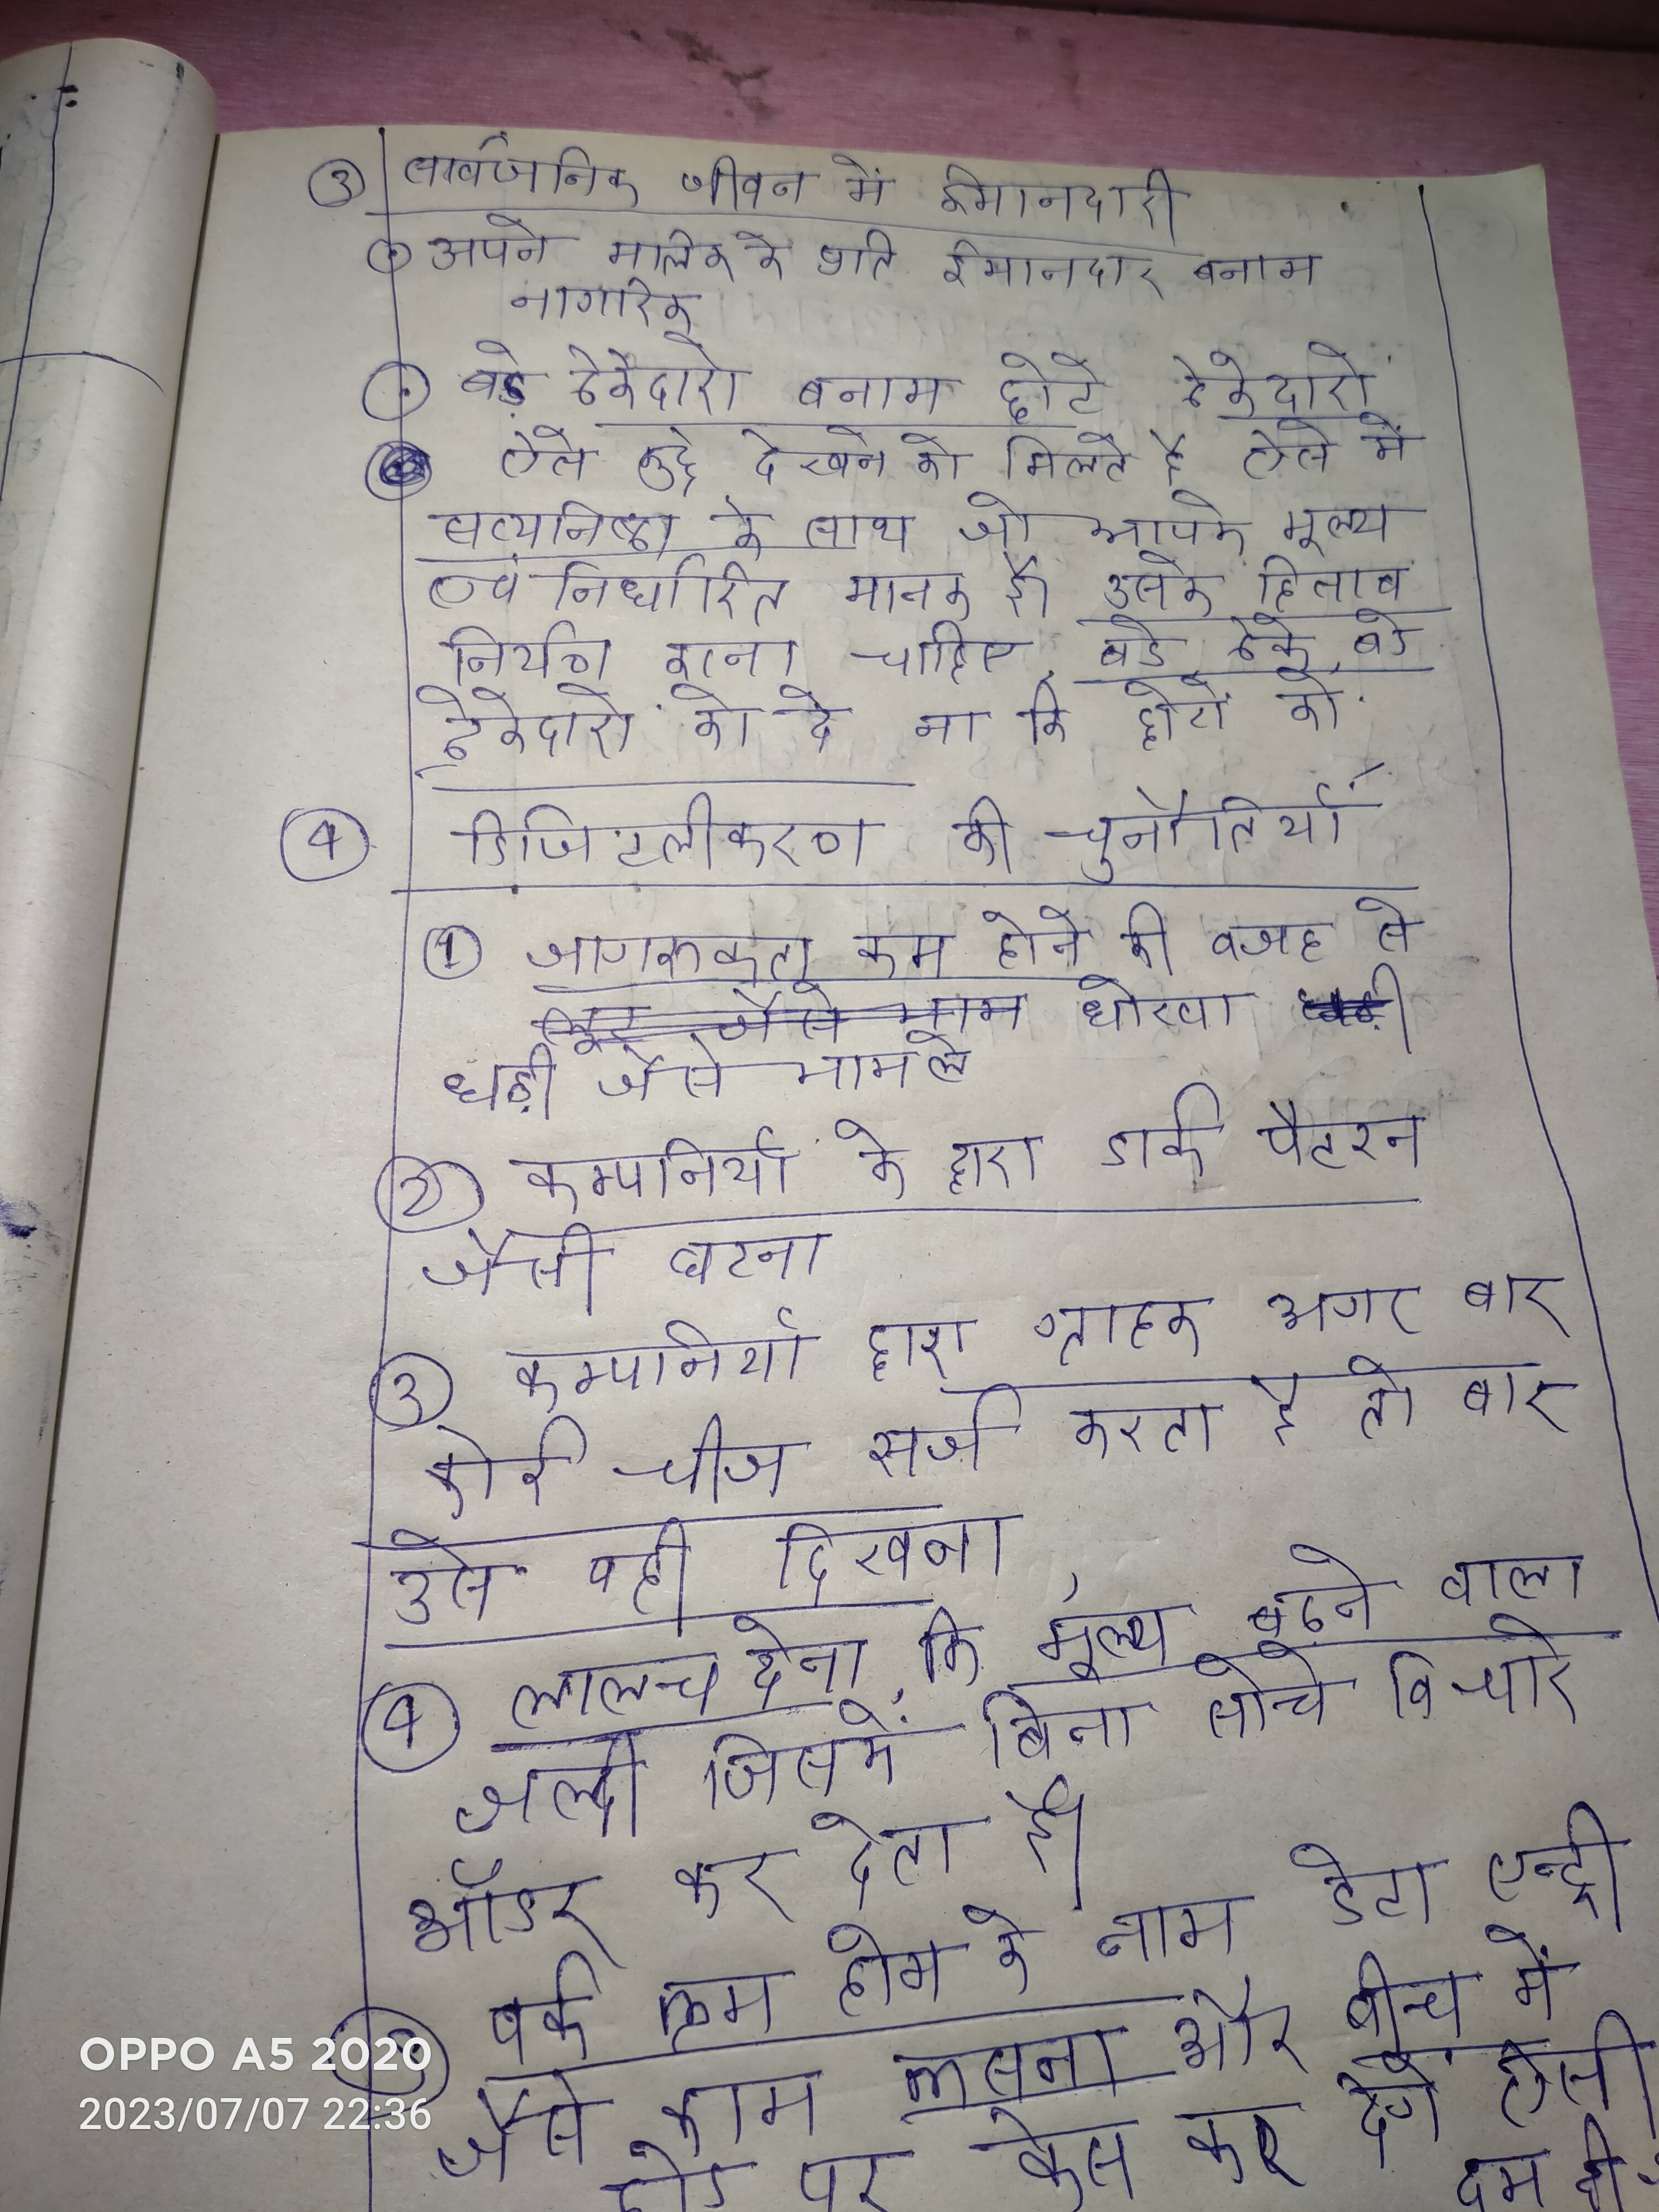 ③ सार्वजनिक जीवन में ईमानदारी
अपने मालिक के प्रति ईमानदार बनाम
नागरिक
बड़े ठेकेदारो बनाम छोटे ठेकेदारों
ऐसे मुद्दे देखने को मिलते है ऐसे में
सत्यनिष्ठा के साथ जो आपके मूल्य
एवं निर्धारित मानक है उसके हिसाब
निर्णय करना चाहिए, बडे ठेके बडे
ठेकेदारो को दे ना कि छोटों को
④ डिजिटलीकरण की चुनौतियाँ
① जागरूकता कम होने की वजह से
धोखा
धड़ी जैसे मामले
② कम्पनियों के द्वारा डार्क पैटरन
जैसी घटना
③ कम्पनियों द्वारा ग्राहक अगर बार
कोई चीज सर्ज करता है तो बार
उसे वही दिखना
④ लालच देना, कि मूल्य बढ़ने वाला
जल्दी जिसमें बिना सोचे विचारे
ऑडर कर देता है।
वर्क फ्रम होम के नाम डेटा एन्ट्री
जैसे काम और बीच में
पर केस कर देंगे ऐसी
OPPO A5 2020
2023/07/07 22:36